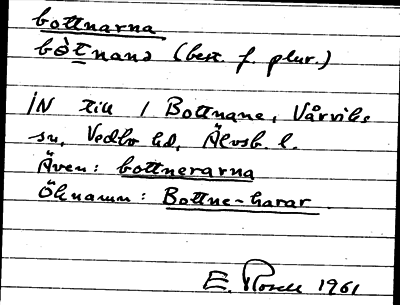 bottnarna
bòt̲nanə (best. f. plur.)
IN till 1 Bottnane, Vårviks
sn, Vedbo hd, Älvsb. l.
Även: bottnerarna
Öknamn: Bottne-harar
E. Rosell 1961